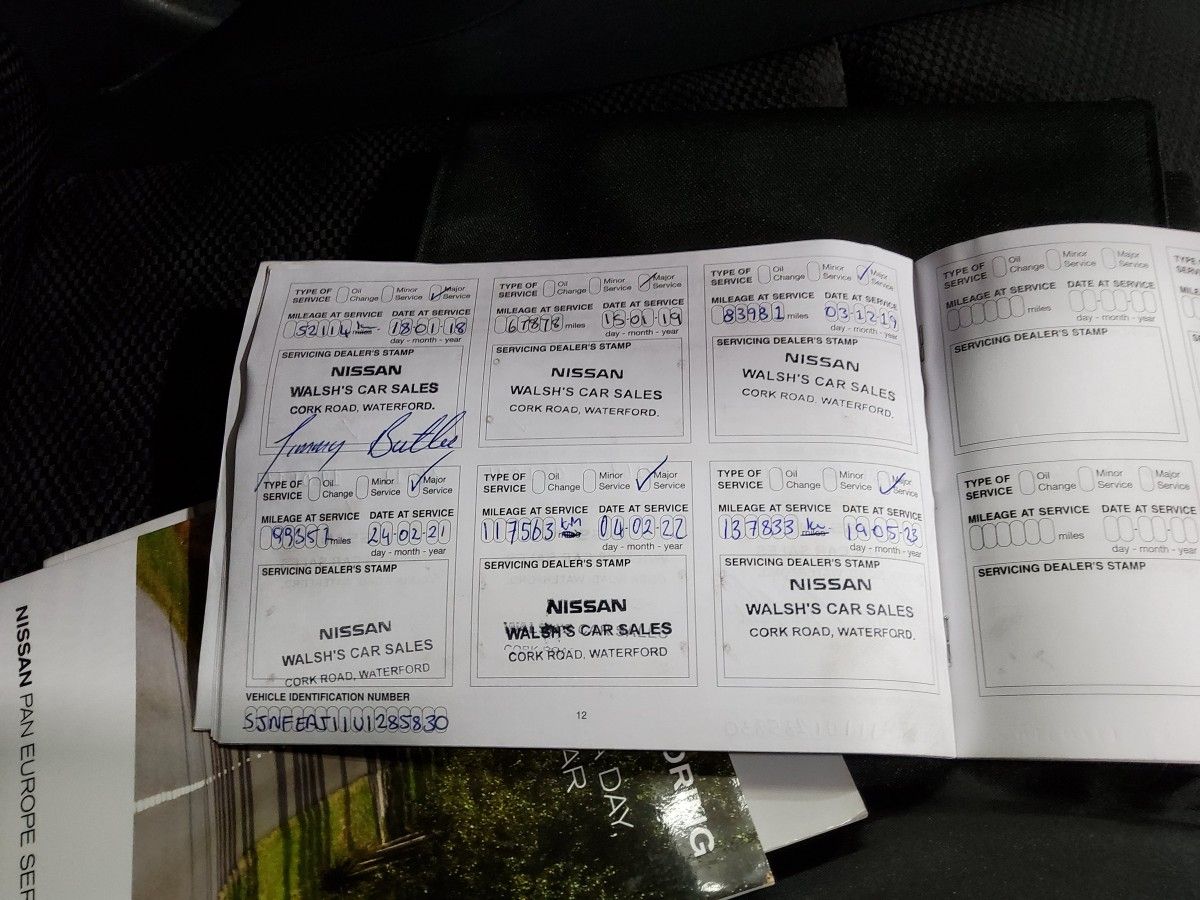 TYPE OF SERVICE Oil Change Minor Service Major Service
MILEAGE AT SERVICE DATE AT SERVICE
52114 km miles 18-01-18
day - month - year
SERVICING DEALER'S STAMP
NISSAN
WALSH'S CAR SALES
CORK ROAD, WATERFORD.
Jimmy Butler
TYPE OF SERVICE Oil Change Minor Service Major Service
MILEAGE AT SERVICE DATE AT SERVICE
67878 miles 15-01-19
day - month - year
SERVICING DEALER'S STAMP
NISSAN
WALSH'S CAR SALES
CORK ROAD, WATERFORD.
TYPE OF SERVICE Oil Change Minor Service Major Service
MILEAGE AT SERVICE DATE AT SERVICE
83981 miles 03-12-19
day - month - year
SERVICING DEALER'S STAMP
NISSAN
WALSH'S CAR SALES
CORK ROAD, WATERFORD.
TYPE OF SERVICE Oil Change Minor Service Major Service
MILEAGE AT SERVICE DATE AT SERVICE
99357 miles 24-02-21
day - month - year
SERVICING DEALER'S STAMP
NISSAN
WALSH'S CAR SALES
CORK ROAD, WATERFORD
TYPE OF SERVICE Oil Change Minor Service Major Service
MILEAGE AT SERVICE DATE AT SERVICE
117563 km 04-02-22
day - month - year
SERVICING DEALER'S STAMP
NISSAN
WALSH'S CAR SALES
CORK ROAD, WATERFORD
TYPE OF SERVICE Oil Change Minor Service Major Service
MILEAGE AT SERVICE DATE AT SERVICE
137833 km miles 19-05-23
day - month - year
SERVICING DEALER'S STAMP
NISSAN
WALSH'S CAR SALES
CORK ROAD, WATERFORD.
VEHICLE IDENTIFICATION NUMBER
SJNFEAJ11U1285830
12
TYPE OF SERVICE Oil Change Minor Service Major Service
MILEAGE AT SERVICE DATE AT SERVICE
miles
day - month - year
SERVICING DEALER'S STAMP
TYPE OF SERVICE Oil Change Minor Service Major Service
MILEAGE AT SERVICE DATE AT SERVICE
miles
day - month - year
SERVICING DEALER'S STAMP
NISSAN PAN EUROPE SER
A DAY,